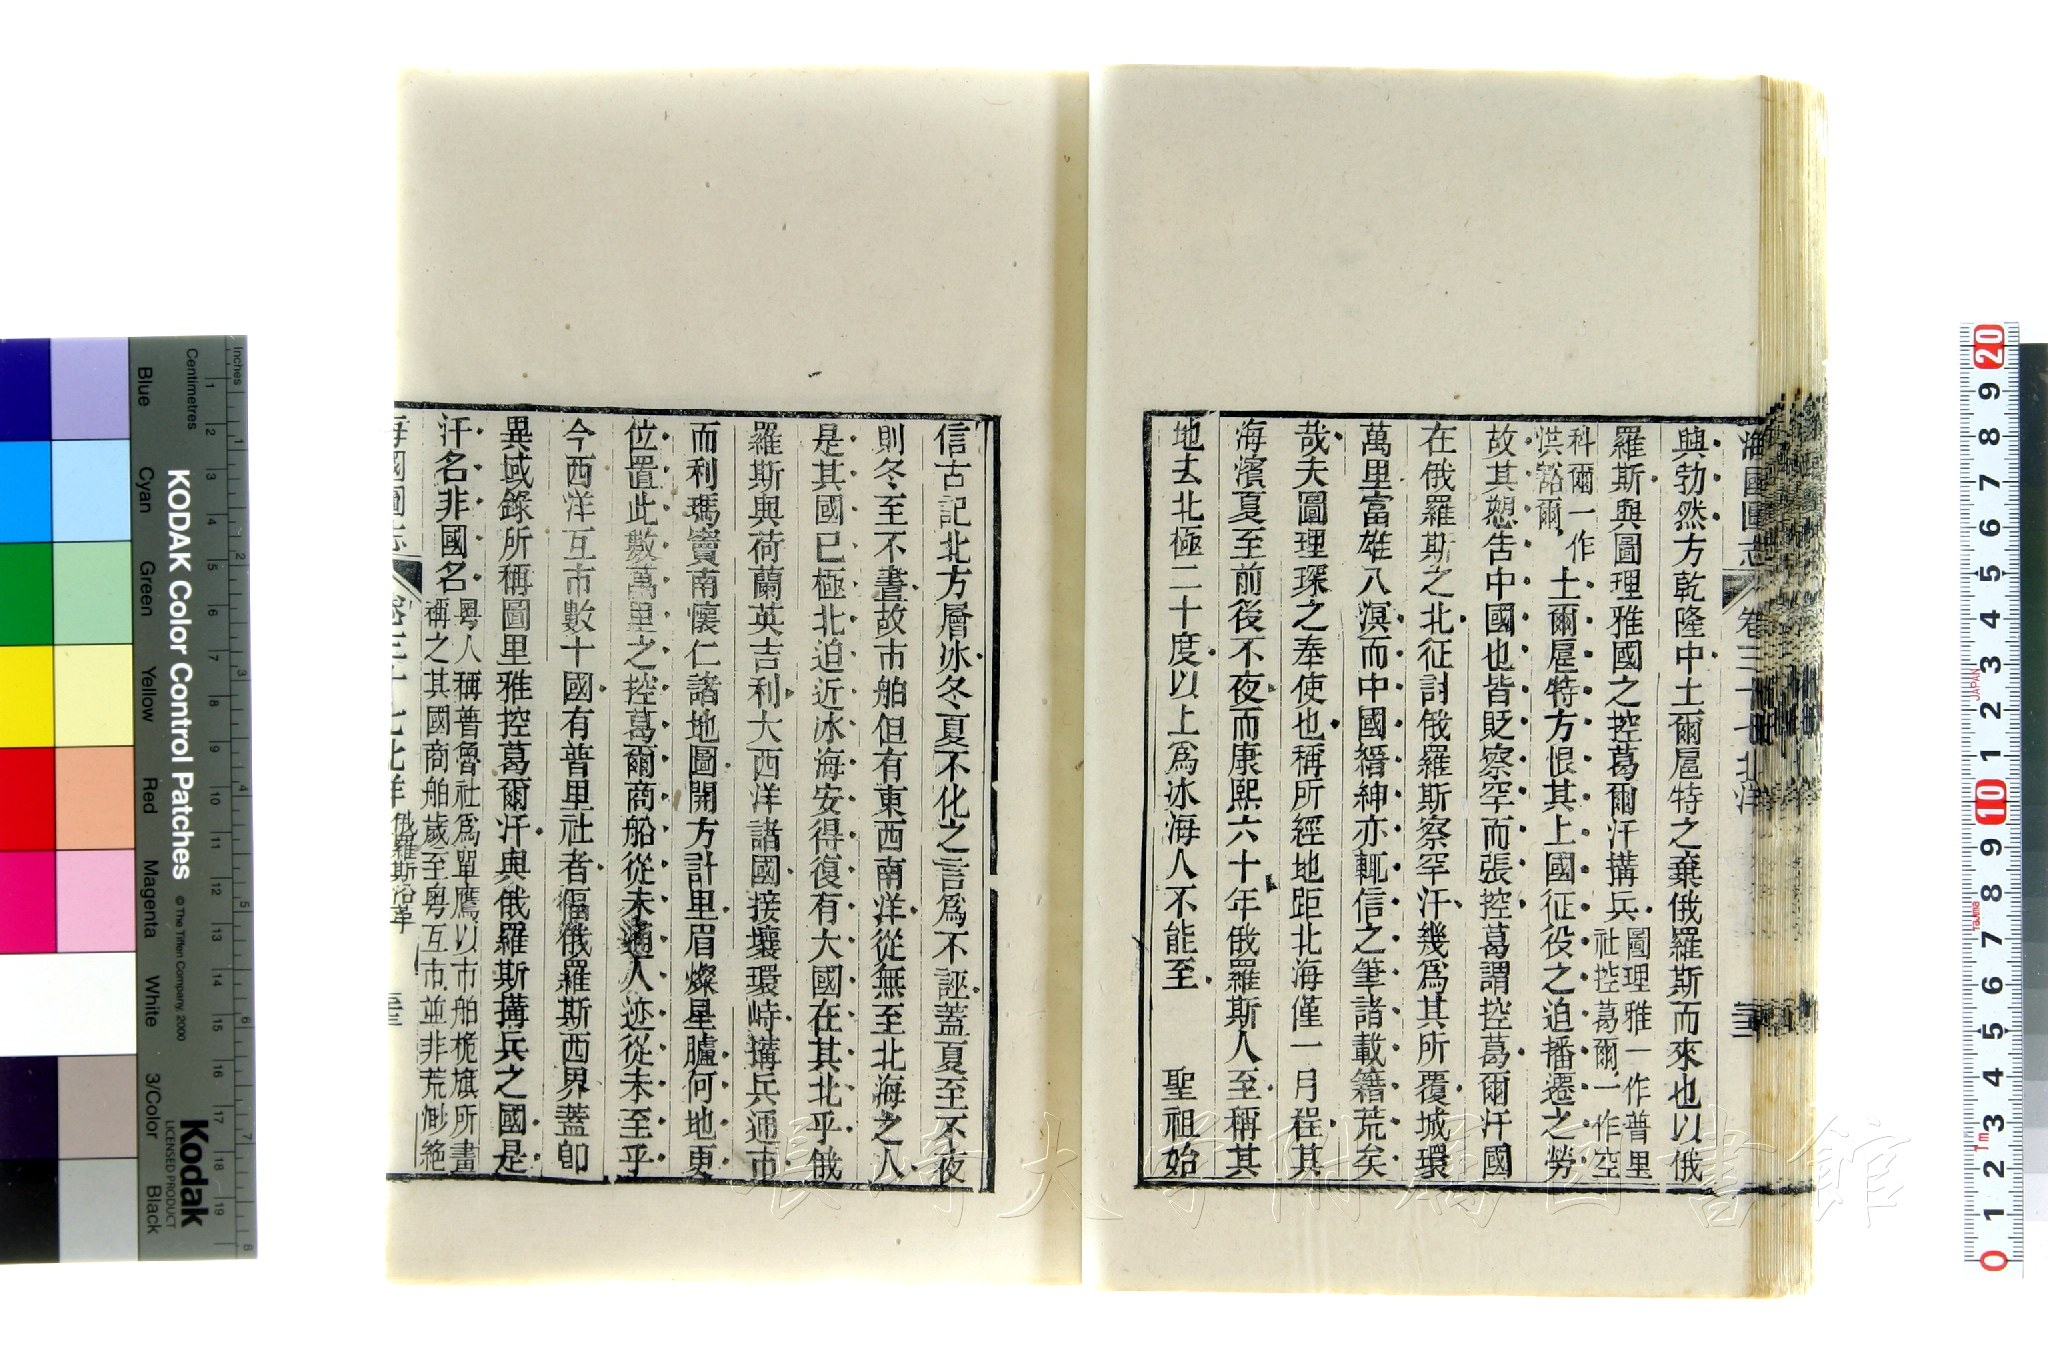 海國圖志 卷三十七 北洋
與勃然方乾隆中土爾扈特之棄俄羅斯而來也以俄
羅斯與圖理雅國之控葛爾汗搆兵圖理雅一作普里社控葛爾一作空
科爾一作洪豁爾土爾扈特方恨其上國征役之迫播遷之勞
故其愬吿中國也皆貶察罕而張控葛謂控葛爾汗國
在俄羅斯之北征討俄羅斯察罕汗幾爲其所覆城環
萬里富雄八溟而中國縉紳亦輒信之筆諸載籍荒矣
哉夫圖理琛之奉使也稱所經地距北海僅一月程其
海濱夏至前後不夜而康熙六十年俄羅斯人至稱其
地去北極二十度以上爲冰海人不能至 聖祖始
信古記北方層冰冬夏不化之言爲不誣蓋夏至不夜
則冬至不晝故市舶但有東西南洋從無至北海之人
是其國已極北迫近冰海安得復有大國在其北乎俄
羅斯與荷蘭英吉利大西洋諸國接壤環峙搆兵通市
而利瑪竇南懷仁諸地圖開方計里眉燦星臚何地更
位置此數萬里之控葛爾商船從未通人迹從未至乎
今西洋互市數十國有普里社者偪俄羅斯西界蓋卽
異域錄所稱圖里雅控葛爾汗與俄羅斯搆兵之國是
汗名非國名粤人稱普魯社爲單鷹以市舶桅旗所畫稱之其國商舶歲至粤互市並非荒渺絶
海國圖志 卷三十七 北洋 俄羅斯沿革 三
KODAK Color Control Patches
©The Tiffen Company, 2000
Kodak
LICENSED PRODUCT
Inches 1 2 3 4 5 6 7 8
Centimetres 1 2 3 4 5 6 7 8 9 10 11 12 13 14 15 16 17 18 19
Blue
Cyan
Green
Yellow
Red
Magenta
White
3/Color
Black
0 1 2 3 4 5 6 7 8 9 10 1 2 3 4 5 6 7 8 9 20
JAPAN
長崎大学附属図書館